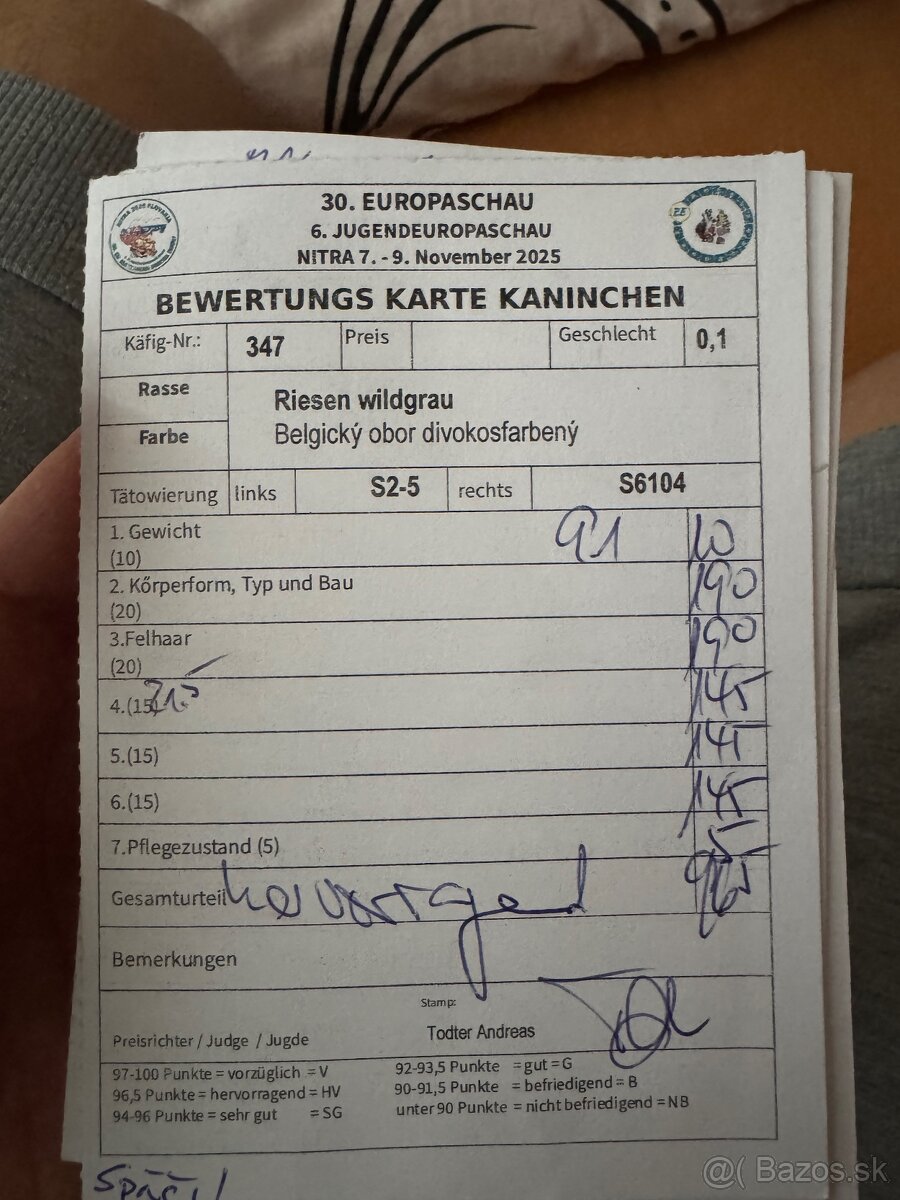 30. EUROPASCHAU
6. JUGENDEUROPASCHAU
NITRA 7. - 9. November 2025
BEWERTUNGS KARTE KANINCHEN
Käfig-Nr.: 347 Preis Geschlecht 0,1
Rasse Riesen wildgrau
Farbe Belgický obor divokosfarbený
Tätowierung links S2-5 rechts S6104
1. Gewicht 91 10
(10)
2. Kőrperform, Typ und Bau 190
(20)
3.Felhaar 190
(20)
4.(15) 145
5.(15) 145
6.(15) 145
7.Pflegezustand (5) 5
Gesamturteil 965
Bemerkungen
Stamp:
Preisrichter / Judge / Jugde Todter Andreas
97-100 Punkte = vorzüglich = V 92-93,5 Punkte = gut = G
96,5 Punkte = hervorragend = HV 90-91,5 Punkte = befriedigend = B
94-96 Punkte = sehr gut = SG unter 90 Punkte = nicht befriedigend = NB
Bazos.sk